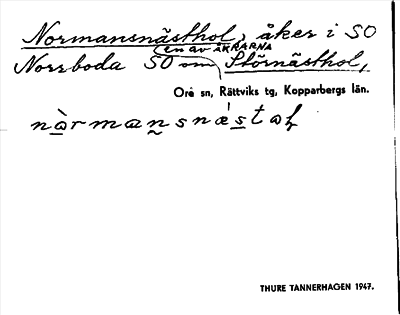 Normansnästhol, åker i SO
en av ÅKRARNA
Norrboda SO om Störnästhol,
Ore sn, Rättviks tg, Kopparbergs län.
nàrmansnǽstaɫ
THURE TANNERHAGEN 1947.